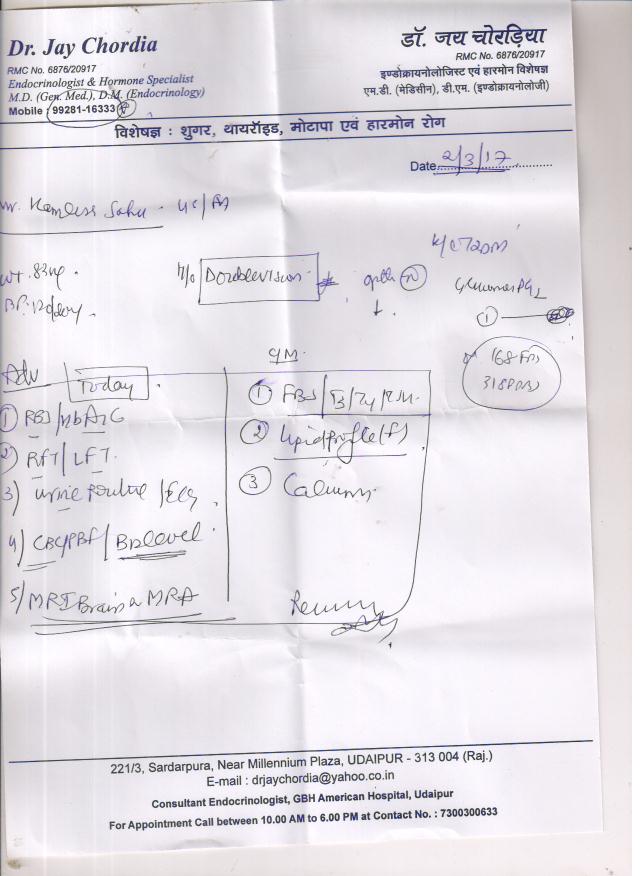 Dr. Jay Chordia
RMC No. 6876/20917
Endocrinologist & Hormone Specialist
M.D. (Gen. Med.), D.M. (Endocrinology)
Mobile : 99281-16333
डॉ. जय चोरड़िया
RMC No. 6876/20917
इण्डोक्रायनोलोजिस्ट एवं हारमोन विशेषज्ञ
एम.डी. (मेडिसीन), डी.एम. (इण्डोक्रायनोलोजी)
विशेषज्ञ : शुगर, थायरॉइड, मोटापा एवं हारमोन रोग
Date 2/3/17
Sahu
Wt. 83kg.
H/o Doublevision
①
168
318
Adv Today
① RBS/HbA1c
2) RFT/LFT.
3) Urine routine /ECG
4) CBC/PBF/B12 level
5) MRI Brain MRA
① FBS/T3/T4/TSH
② Lipid profile (F)
③ Calcium
221/3, Sardarpura, Near Millennium Plaza, UDAIPUR - 313 004 (Raj.)
E-mail : drjaychordia@yahoo.co.in
Consultant Endocrinologist, GBH American Hospital, Udaipur
For Appointment Call between 10.00 AM to 6.00 PM at Contact No. : 7300300633